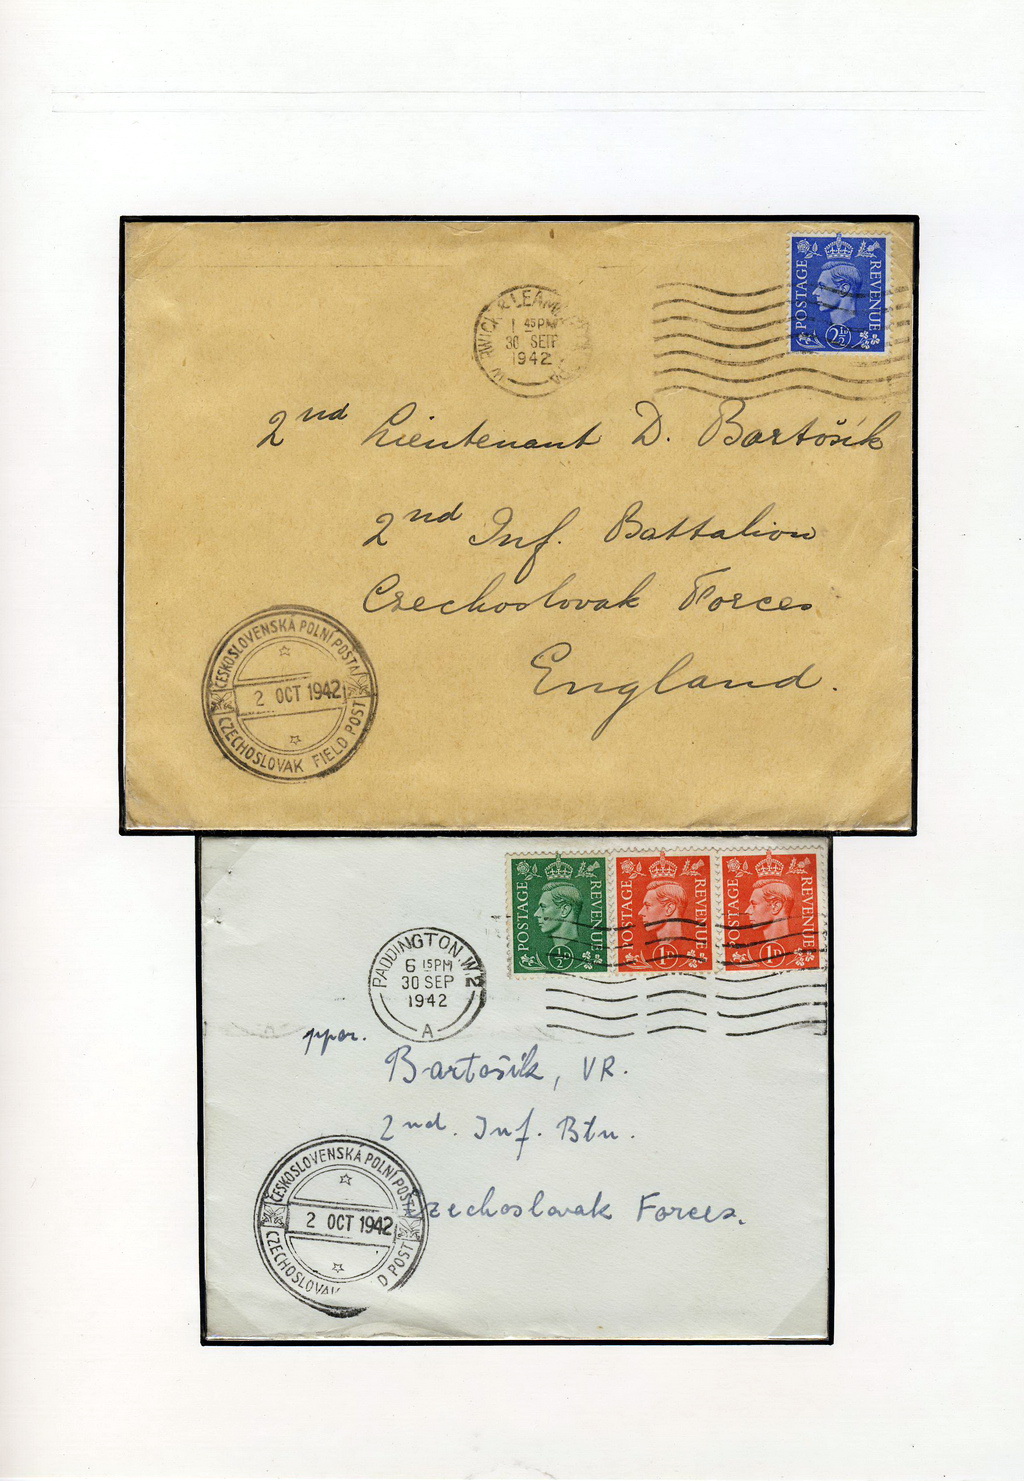 POSTAGE REVENUE
2½D
1 45PM
30 SEP
1942
2nd Lieutenant D. Bartošík
2nd Inf. Battalion
Czechoslovak Forces
England.
ČESKOSLOVENSKÁ POLNÍ POŠTA
2 OCT 1942
CZECHOSLOVAK FIELD POST
POSTAGE REVENUE
½D
POSTAGE REVENUE
1D
POSTAGE REVENUE
1D
PADDINGTON. W.2
6 15PM
30 SEP
1942
A
ppor.
Bartošík, VR.
2nd. Inf. Btn.
Czechoslovak Forces.
ČESKOSLOVENSKÁ POLNÍ POŠTA
2 OCT 1942
CZECHOSLOVAK D POST